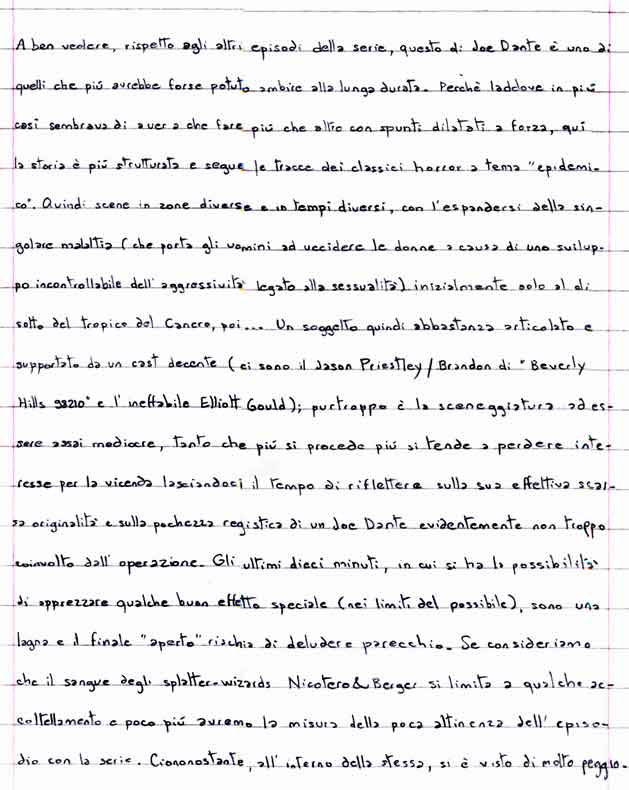 A ben vedere, rispetto agli altri episodi della serie, questo di Joe Dante è uno di
quelli che più avrebbe forse potuto ambire alla lunga durata. Perchè laddove in più
casi sembrava di aver a che fare più che altro con spunti dilatati a forza, qui
la storia è più strutturata e segue le tracce dei classici horror a tema "epidemi-
co". Quindi scene in zone diverse e in tempi diversi, con l'espandersi della sin-
golare malattia (che porta gli uomini ad uccidere le donne a causa di uno svilup-
po incontrollabile dell'aggressività legato alla sessualità) inizialmente solo al di
sotto del tropico del Cancro, poi... Un soggetto quindi abbastanza articolato e
supportato da un cast decente (ci sono il Jason Priestley/Brandon di "Beverly
Hills 90210" e l'ineffabile Elliott Gould); purtroppo è la sceneggiatura ad es-
sere assai mediocre, tanto che più si procede più si tende a perdere inte-
resse per la vicenda lasciandoci il tempo di riflettere sulla sua effettiva scar-
sa originalità e sulla pochezza registica di un Joe Dante evidentemente non troppo
coinvolto dall'operazione. Gli ultimi dieci minuti, in cui si ha la possibilità
di apprezzare qualche buon effetto speciale (nei limiti del possibile), sono una
lagna e il finale "aperto" rischia di deludere parecchio. Se consideriamo
che il sangue degli splatter-wizards Nicotero&Berger si limita a qualche ac-
coltellamento e poco più avremo la misura della poca attinenza dell'episo-
dio con la serie. Ciononostante, all'interno della stessa, si è visto di molto peggio.